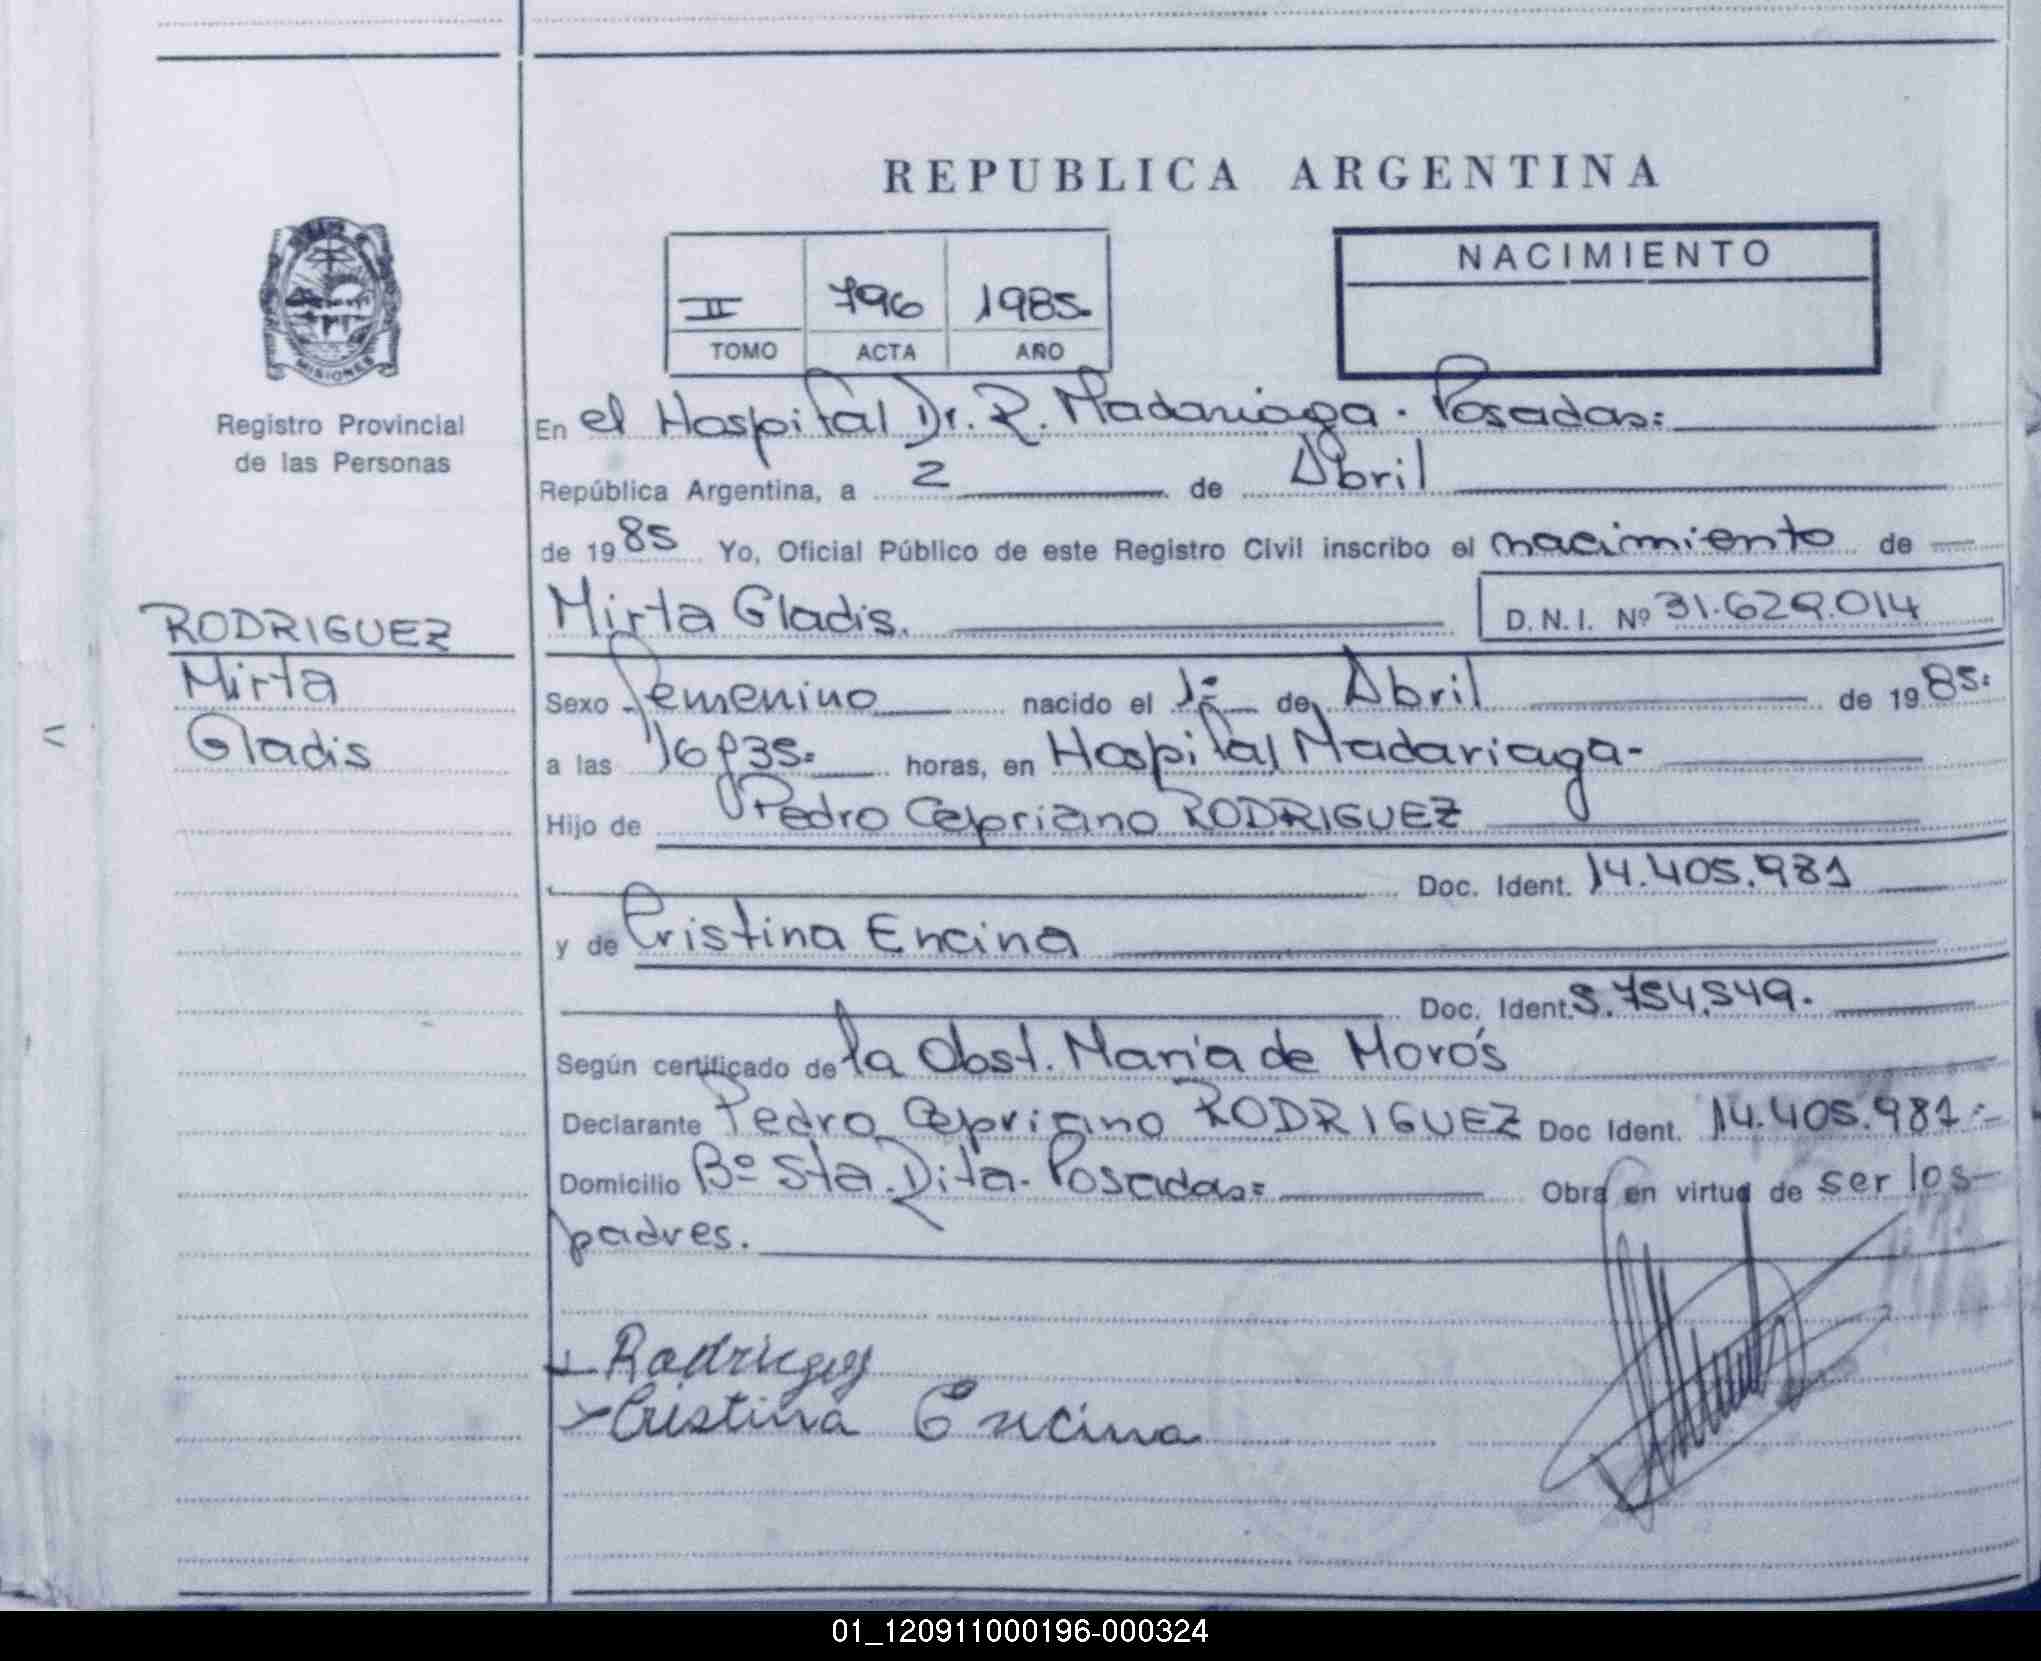 REPUBLICA ARGENTINA
NACIMIENTO
II 796 1985.
TOMO ACTA AÑO
MISIONES
Registro Provincial
de las Personas
En el Hospital Dr. R. Madariaga. Posadas:
República Argentina, a 2 de Abril
de 1985 Yo, Oficial Público de este Registro Civil inscribo el nacimiento de
Mirta Gladis. D.N.I. Nº 31.629.014
RODRIGUEZ
Mirta
Gladis
Sexo Femenino nacido el 1º de Abril de 1985:
a las 16 y 35: horas, en Hospital Madariaga-
Hijo de Pedro Cepriano RODRIGUEZ
Doc. Ident. 14.405.981
y de Cristina Encina
Doc. Ident. 5.754.549.
Según certificado de la Obst. María de Morós
Declarante Pedro Cepriano RODRIGUEZ Doc Ident. 14.405.981:-
Domicilio Bº Sta. Rita. Posadas: Obra en virtud de ser los-
padres.
Rodriguez
Cristina Encina
01_120911000196-000324